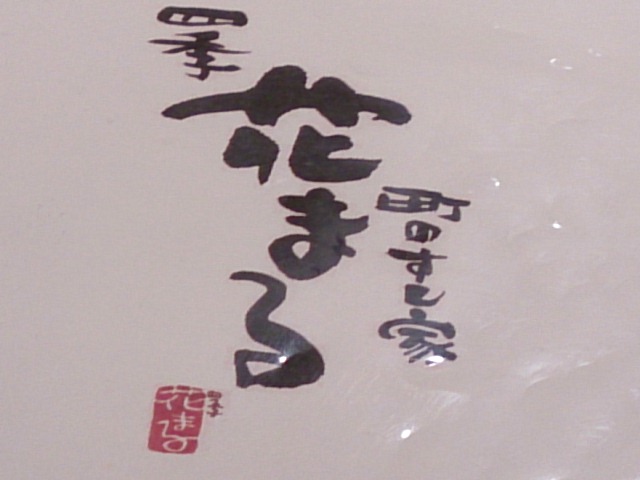 町のすし家
四季
花まる
四季
花まる